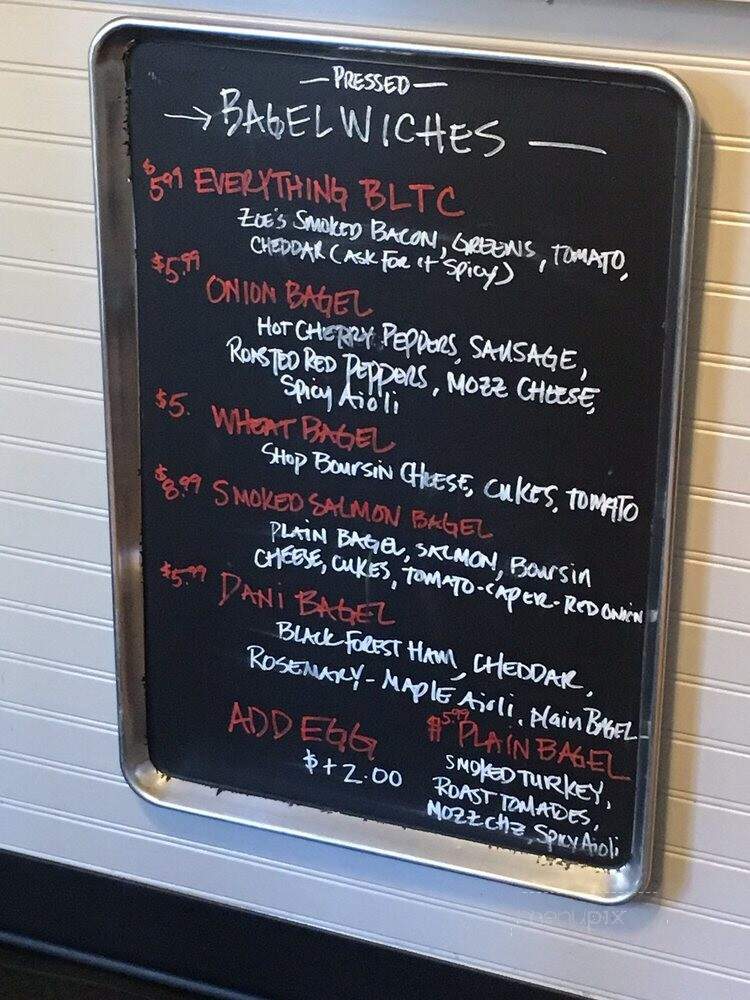 — PRESSED —
→ BAGELWICHES —
$5.99 EVERYTHING BLTC
ZOE'S SMOKED BACON, GREENS, TOMATO,
CHEDDAR (ASK FOR it Spicy)
$5.99
ONION BAGEL
HOT CHERRY PEPPERS, SAUSAGE,
ROASTED RED PEPPERS, MOZZ CHEESE,
Spicy Aioli
$5. WHEAT BAGEL
SHOP BOURSIN CHEESE, CUKES, TOMATO
$8.99 SMOKED SALMON BAGEL
PLAIN BAGEL, SALMON, BOURSIN
CHEESE, CUKES, TOMATO-CAPER-RED ONION
$5.99 DANI BAGEL
BLACK FOREST HAM, CHEDDAR,
ROSEMARY-MAPLE Aioli, Plain BAGEL
ADD EGG
$+2.00
$5.99 PLAIN BAGEL
SMOKED TURKEY,
ROAST TOMATOES,
MOZZ CHZ, SPICY Aioli
menupix